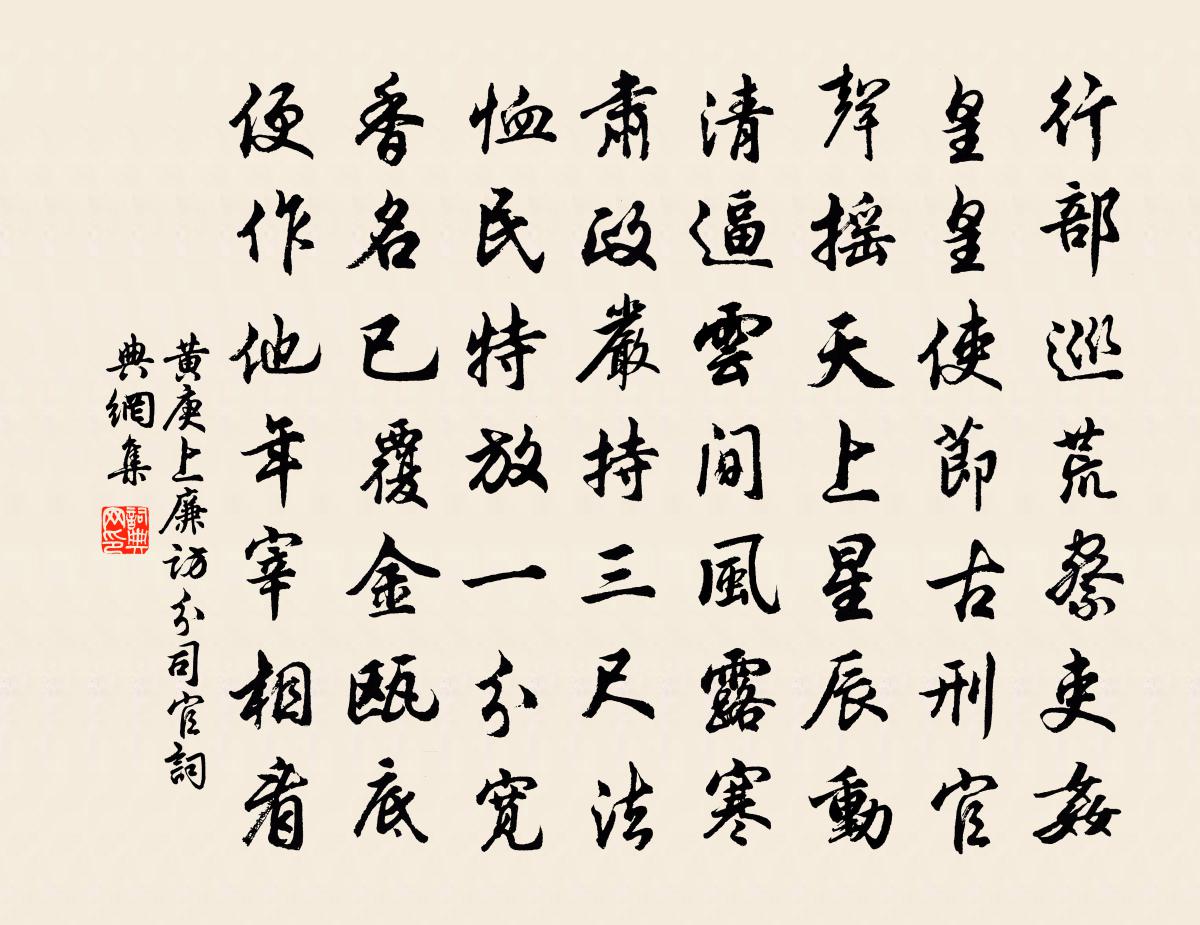 行部巡荒察吏姦
皇皇使節古刑官
聲搖天上星辰動
清逼雲間風露寒
肅政嚴持三尺法
恤民特放一分寬
香名已覆金甌底
便作他年宰相看
黃庚上廉訪分司官詞
典網集
詞典网印